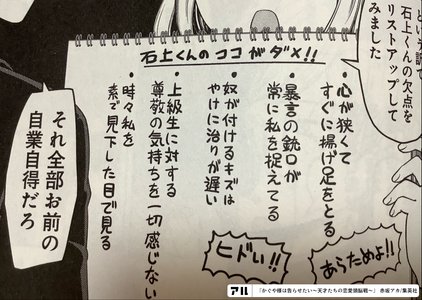 という訳で
石上くんの欠点を
リストアップして
みました
石上くんのココがダメ!!
・心が狭くて
すぐに揚げ足をとる
・暴言の銃口が
常に私を捉えてる
・奴が付けるキズは
やけに治りが遅い
・上級生に対する
尊敬の気持ちを一切感じない
・時々私を
素で見下した目で見る
あらためよ!!
ヒドい!!
それ全部お前の
自業自得だろ
アル
『かぐや様は告らせたい～天才たちの恋愛頭脳戦～』 赤坂アカ/集英社